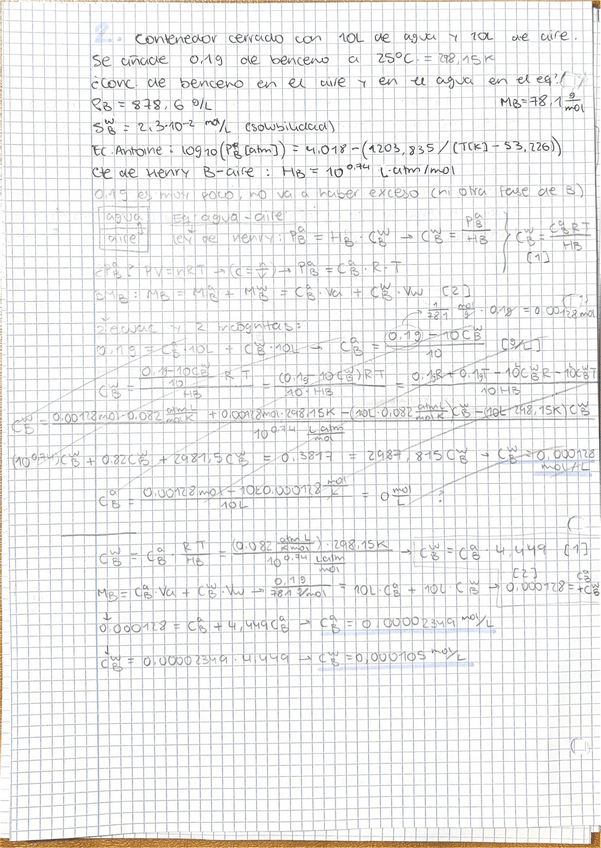 2.
Contenedor cerrado con 10L de agua y 10L de aire.
Se añade 0.1g de benceno a 25ºC. = 298,15K
¿Conc de benceno en el aire y en el agua en el eq?
ρB = 878,6 g/L MB = 78,1 g/mol
S_B^w = 2,3·10^-2 mol/L (solubilidad)
Ec. Antoine: log10(P_B^o [atm]) = 4,018 - (1203,835 / (T[K] - 53,226))
Cte de Henry B-aire: HB = 10^0,74 L·atm/mol
0.1g es muy poco, no va a haber exceso (ni otra fase de B)
agua Eq. agua-aire
aire Ley de Henry: P_B^a = H_B · C_B^w → C_B^w = P_B^a / HB } C_B^w = C_B^a R T / HB [1]
¿P_B^a? PV=nRT → (C = n/V) → P_B^a = C_B^a · R · T
BMB: MB = M_B^a + M_B^w = C_B^a · Va + C_B^w · Vw [2]
2 ecuac y 2 incognitas: 1/78.1 mol/g · 0.1g = 0.00128mol
0.1g = C_B^a · 10L + C_B^w · 10L → C_B^a = (0.1g - 10C_B^w) / 10 [g/L]
C_B^w = ((0.1g - 10C_B^w)/10 · R T) / HB = (0.1g - 10C_B^w) R T / 10·HB = 0,1R + 0,1T - 10C_B^w R - 10C_B^w T / 10HB
C_B^w = 0.00128mol·0.082 atm L/mol K + 0.00128mol·298,15K - (10L·0,082 atm L/mol K) C_B^w - (10L·298,15K) C_B^w / 10^0.74 L atm/mol
(10^0,74) C_B^w + 0.82C_B^w + 2981,5C_B^w = 0,3817 = 2987,815C_B^w → C_B^w = 0,000128 mol/L
C_B^a = (0.00128mol - 10L·0,000128 mol/L) / 10L = 0 mol/L ?
C_B^w = C_B^a · R T / HB = (0.082 atm L/K mol) · 298.15K / 10^0.74 L atm/mol → C_B^w = C_B^a · 4,449 [1]
MB = C_B^a · Va + C_B^w · Vw → 0.1g / 78.1 g/mol = 10L · C_B^a + 10L · C_B^w → 0,000128 = C_B^a + C_B^w [2]
0,000128 = C_B^a + 4,449C_B^a → C_B^a = 0,00002349 mol/L
C_B^w = 0,00002349 · 4,449 → C_B^w = 0,000105 mol/L